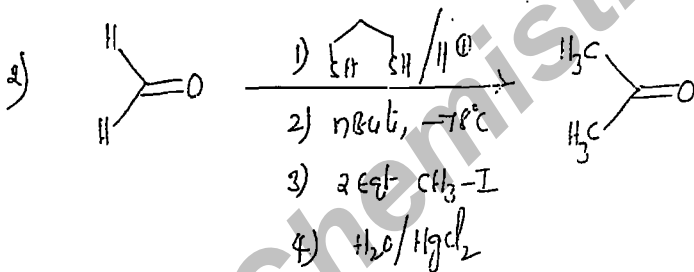 2)
H
H
O
1) SH SH / H⊕
2) nBuLi, -78°C
3) 2 eqt CH3-I
4) H2O/HgCl2
H3C
H3C
O
chemist